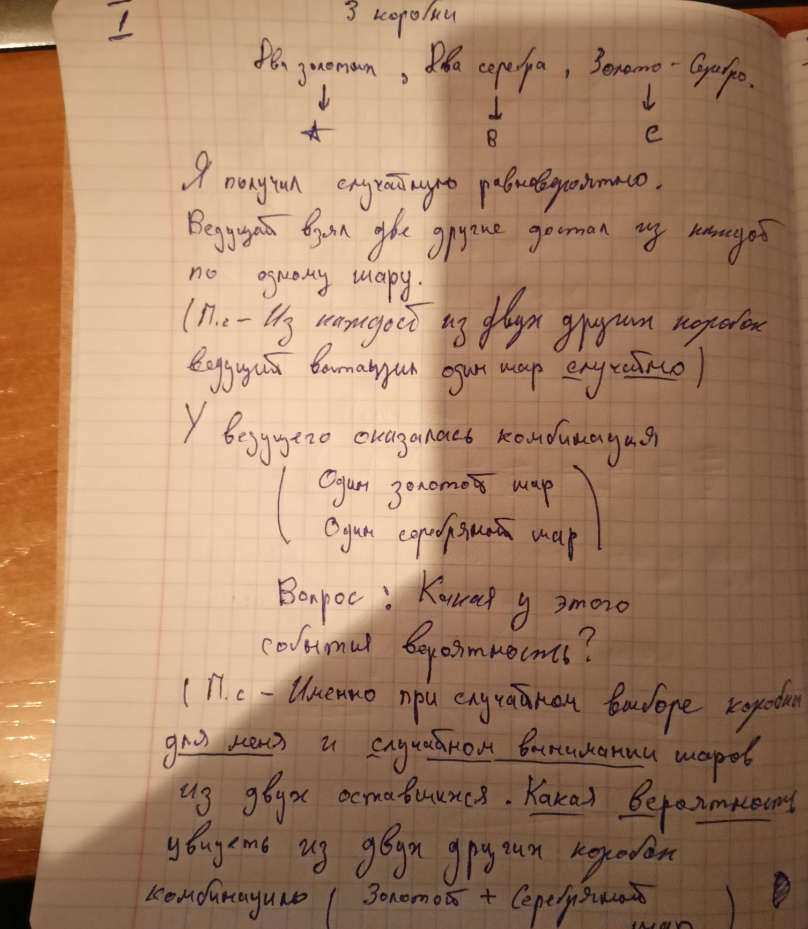 I
3 коробки
Два золотых, Два серебра, Золото - Серебро.
A B C
Я получил случайную равновероятно.
Ведущий взял две другие достал из каждой
по одному шару.
(П.с - Из каждой из двух других коробок
ведущий вытащил один шар случайно)
У ведущего оказалась комбинация
( Один золотой шар
Один серебряный шар )
Вопрос: Какая у этого
события вероятность?
( П.с - Именно при случайном выборе коробки
для меня и случайном вынимании шаров
из двух оставшихся. Какая вероятность
увидеть из двух других коробок
комбинацию ( Золотой + Серебряный
шар )